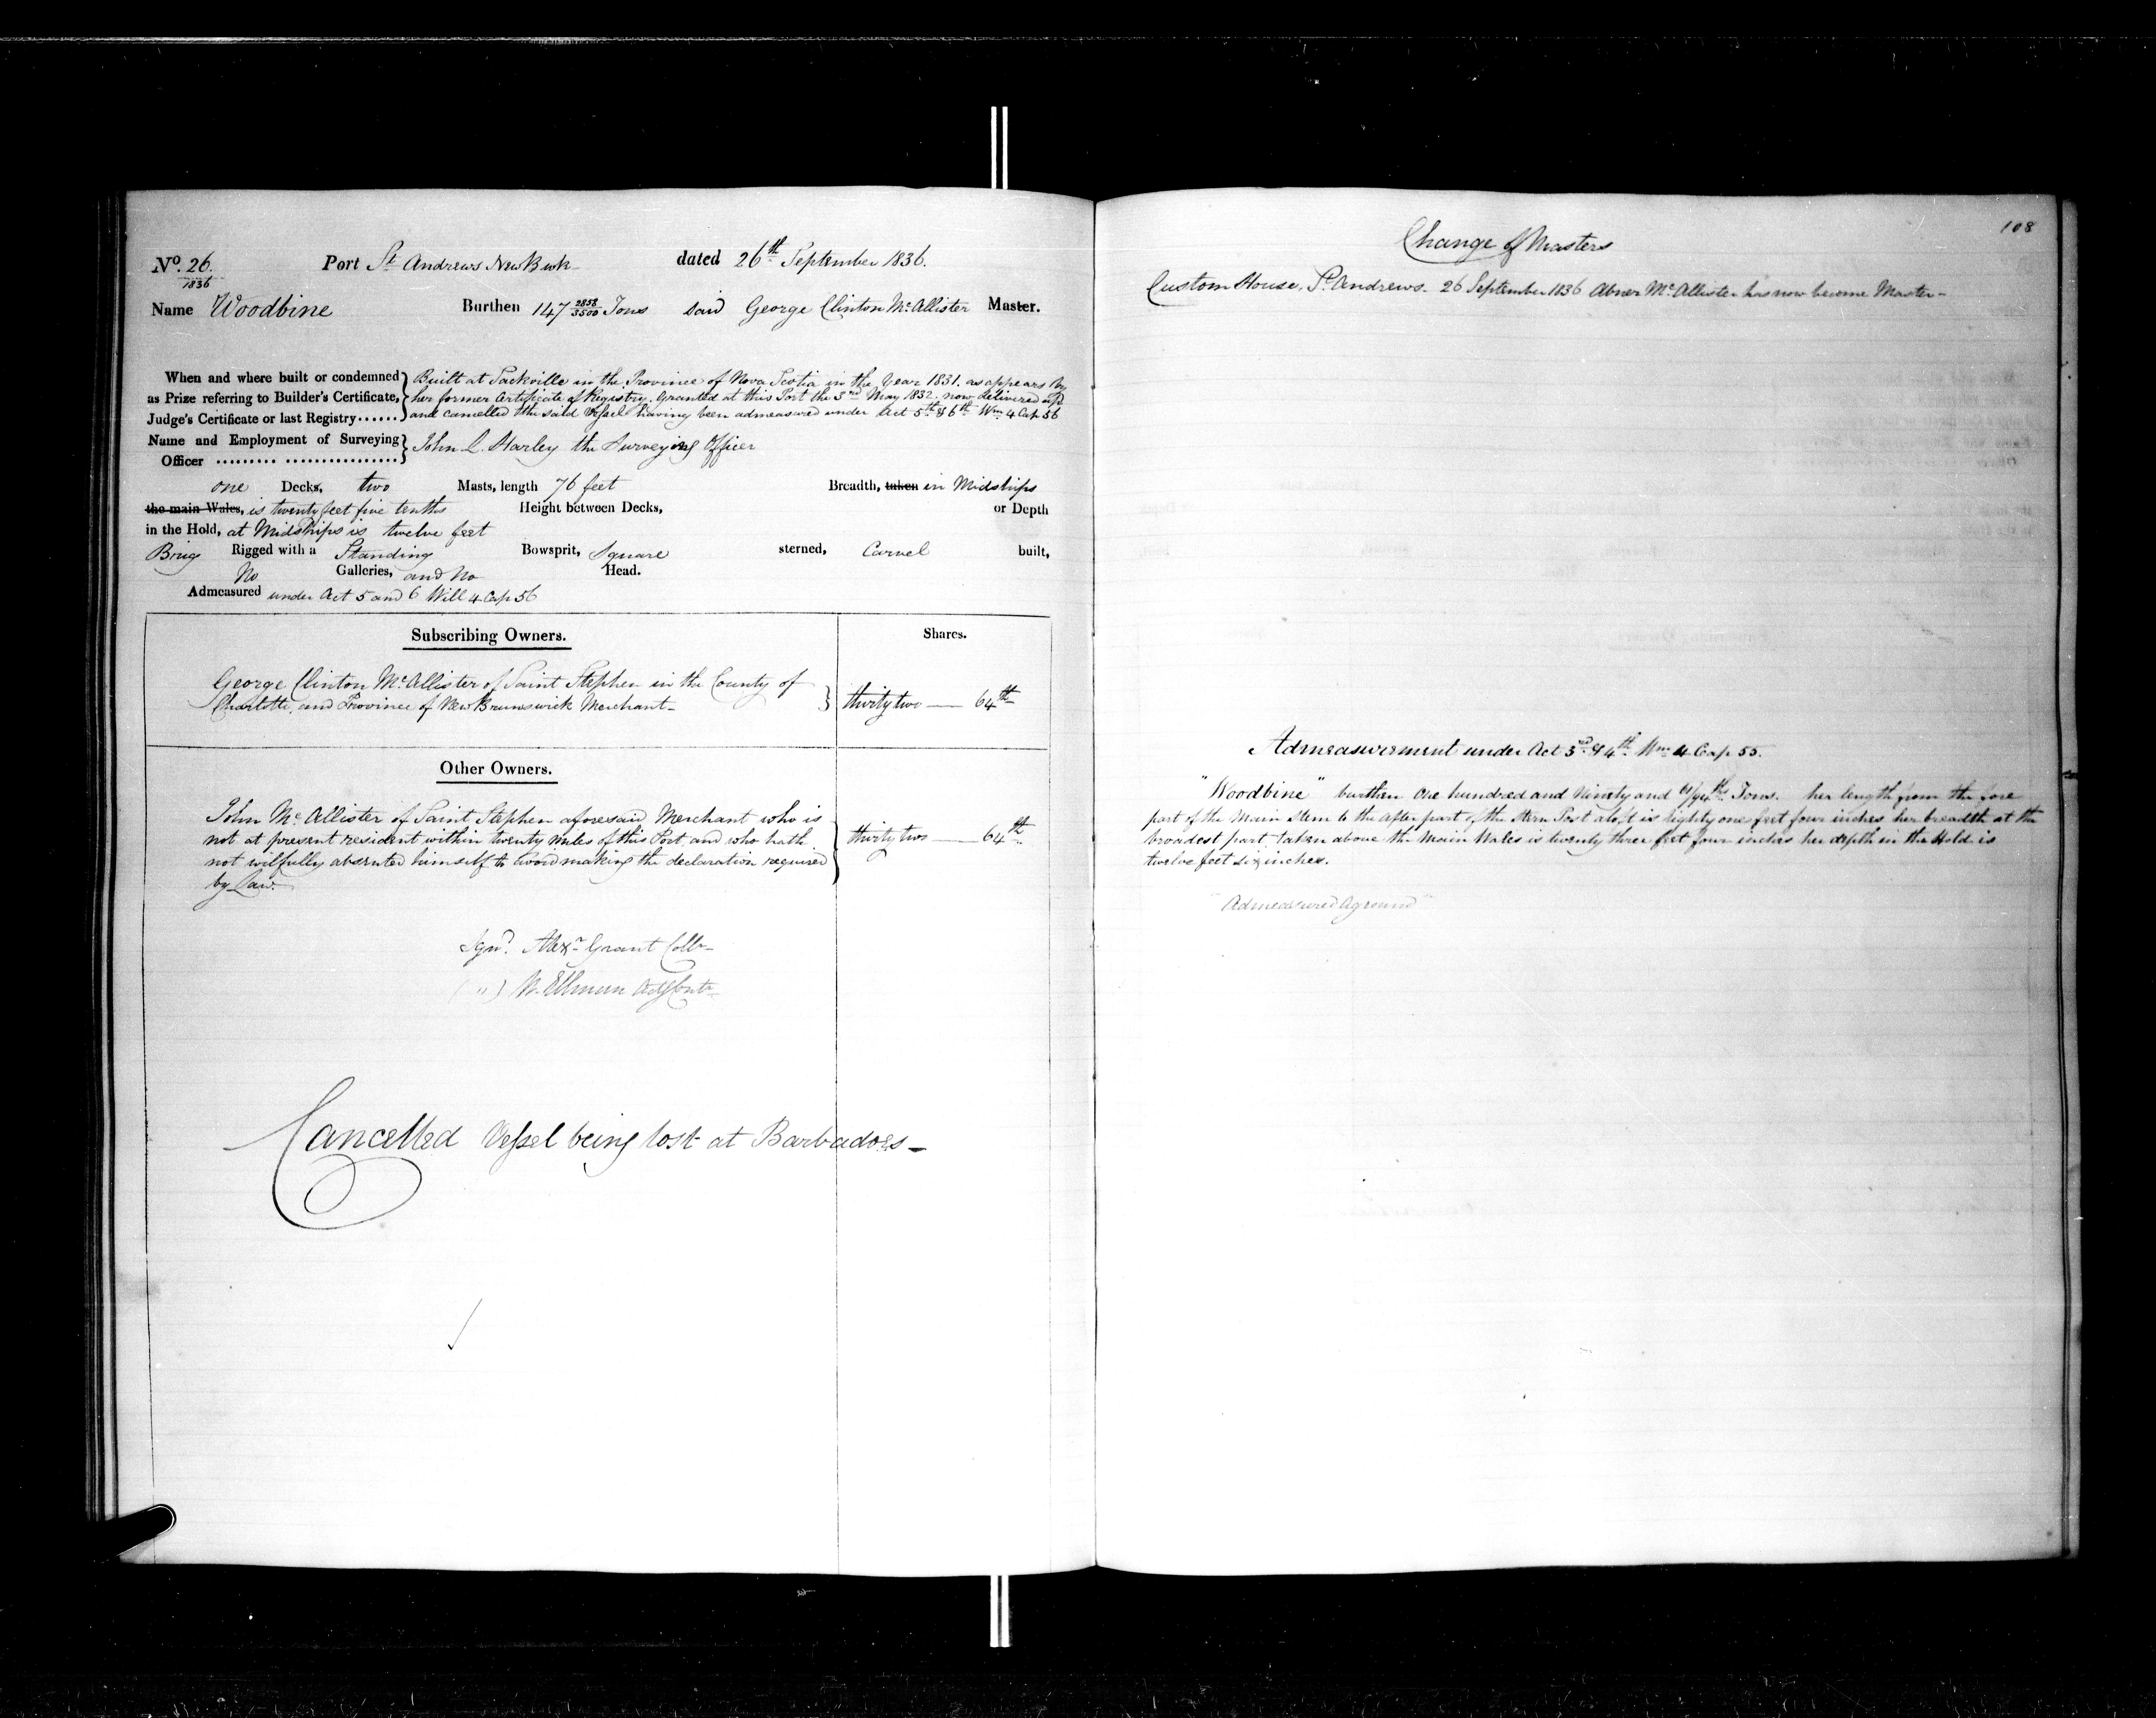 No. 26.
1836
Port St Andrews New Bwk dated 26th September 1836.
Name Woodbine Burthen 147 2858/3500 Tons said George Clinton McAllister Master.
When and where built or condemned as Prize referring to Builder's Certificate, Judge's Certificate or last Registry......
Built at Sackville in the Province of Nova Scotia in the Year 1831. as appears by
her former Certificate of Registry. Granted at this Port the 3rd May 1832. now delivered up
and cancelled the said Vessel having been admeasured under Act 5th & 6th Wm 4 Cap 56
Name and Employment of Surveying Officer ......... ................
John L. Starley the Surveying Officer
one Decks, two Masts, length 76 feet Breadth, taken in Midships
the main Wales, is twenty feet five tenths Height between Decks, or Depth
in the Hold, at Midships is twelve feet
Brig Rigged with a Standing Bowsprit, Square sterned, Carvel built,
No Galleries, and No Head.
Admeasured under Act 5 and 6 Will 4 Cap 56
Subscribing Owners. Shares.
George Clinton McAllister of Saint Stephen in the County of
Charlotte, and Province of New Brunswick Merchant thirty two 64th
Other Owners.
John McAllister of Saint Stephen aforesaid Merchant who is
not at present resident within twenty miles of this Port, and who hath thirty two 64th
not wilfully absented himself to avoid making the declaration required
by Law.
Sgnd. Alexr Grant Collr
(") Cancelled Vessel being lost at Barbadoes
108
Change of Masters
Custom House, St Andrews. 26 September 1836 Abner McAllister has now become Master
Admeasurement under Act 3rd & 4th Wm 4 Cap 55.
"Woodbine" burthen One hundred and Ninety and Tons. her length from the fore
part of the Main Stem to the After part of the Stern Post aloft is Eighty one feet four inches her breadth at the
broadest part taken above the Main Wales is twenty three feet four inches her depth in the Hold is
twelve feet six inches.
"Admeasured Aground"